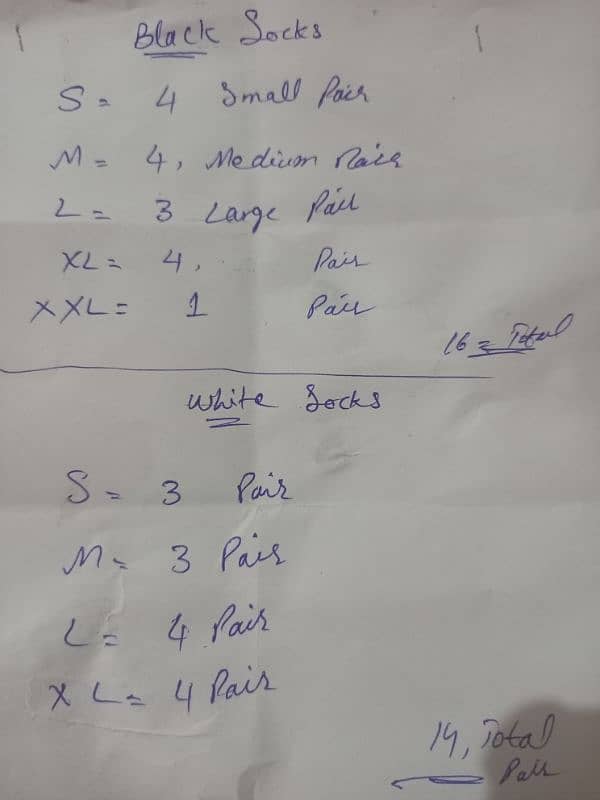 Black Socks
S = 4 Small Pair
M = 4, Medium Pair
L = 3 Large Pair
XL = 4, Pair
XXL = 1 Pair
16 = Total
White Socks
S = 3 Pair
M = 3 Pair
L = 4 Pair
XL = 4 Pair
14, Total
Pair